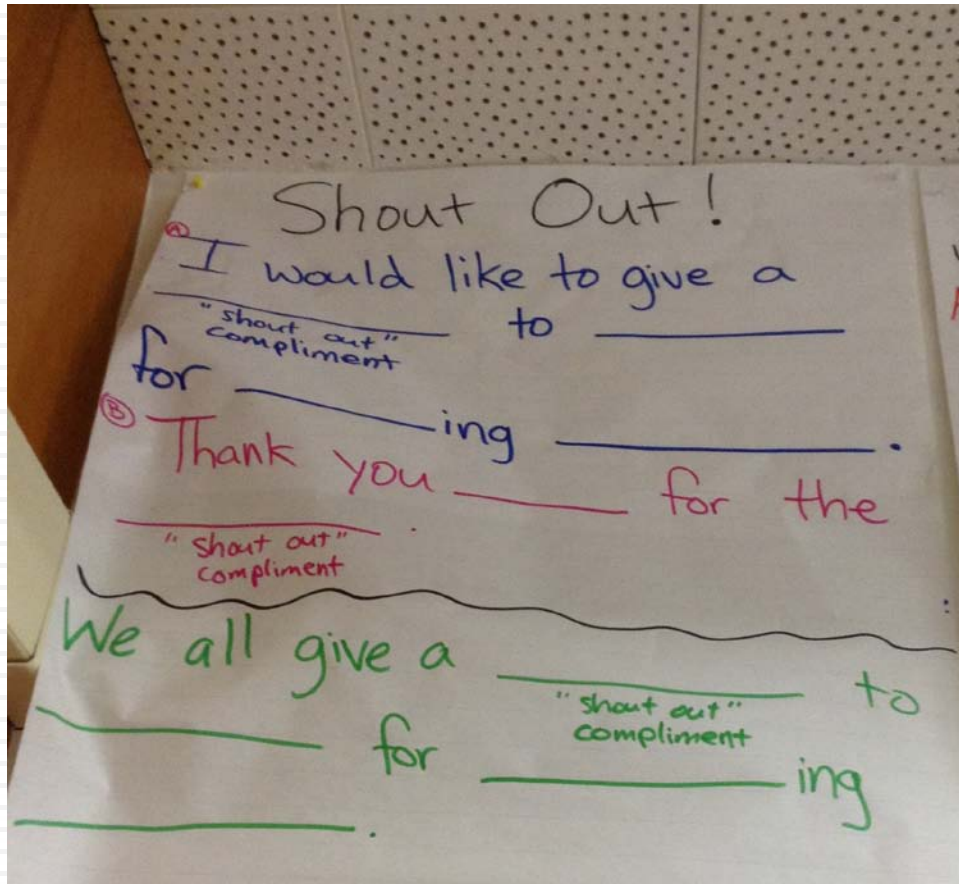 Shout Out!
Ⓐ
I would like to give a
__________ to __________
"shout out"
compliment
for ________ing __________.
Ⓑ
Thank you ______ for the
__________.
"shout out"
compliment
We all give a __________ to
"shout out"
compliment
__________ for __________ing
__________.